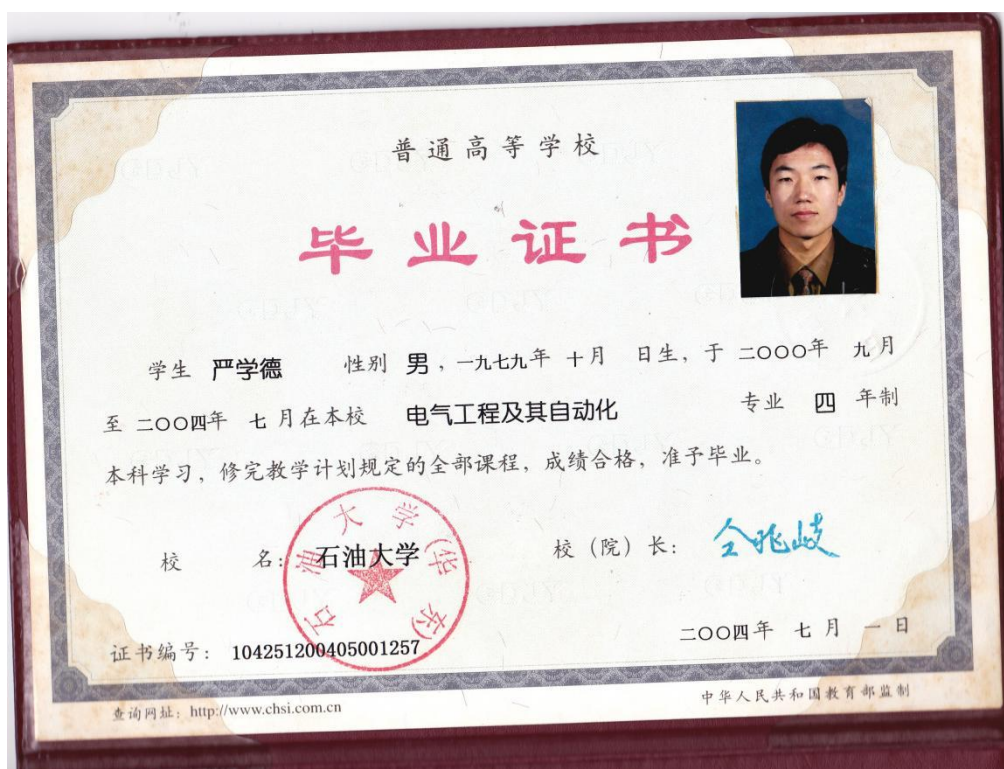 普通高等学校
毕业证书
学生 严学德 性别 男，一九七九年 十月 日生，于 二〇〇〇年 九月
至 二〇〇四年 七月在本校 电气工程及其自动化 专业 四 年制
本科学习，修完教学计划规定的全部课程，成绩合格，准予毕业。
校 名：石油大学 校（院）长：仝兆岐
石油大学（华东）
二〇〇四年 七月 一日
证书编号：104251200405001257
查询网址：http://www.chsi.com.cn
中华人民共和国教育部监制